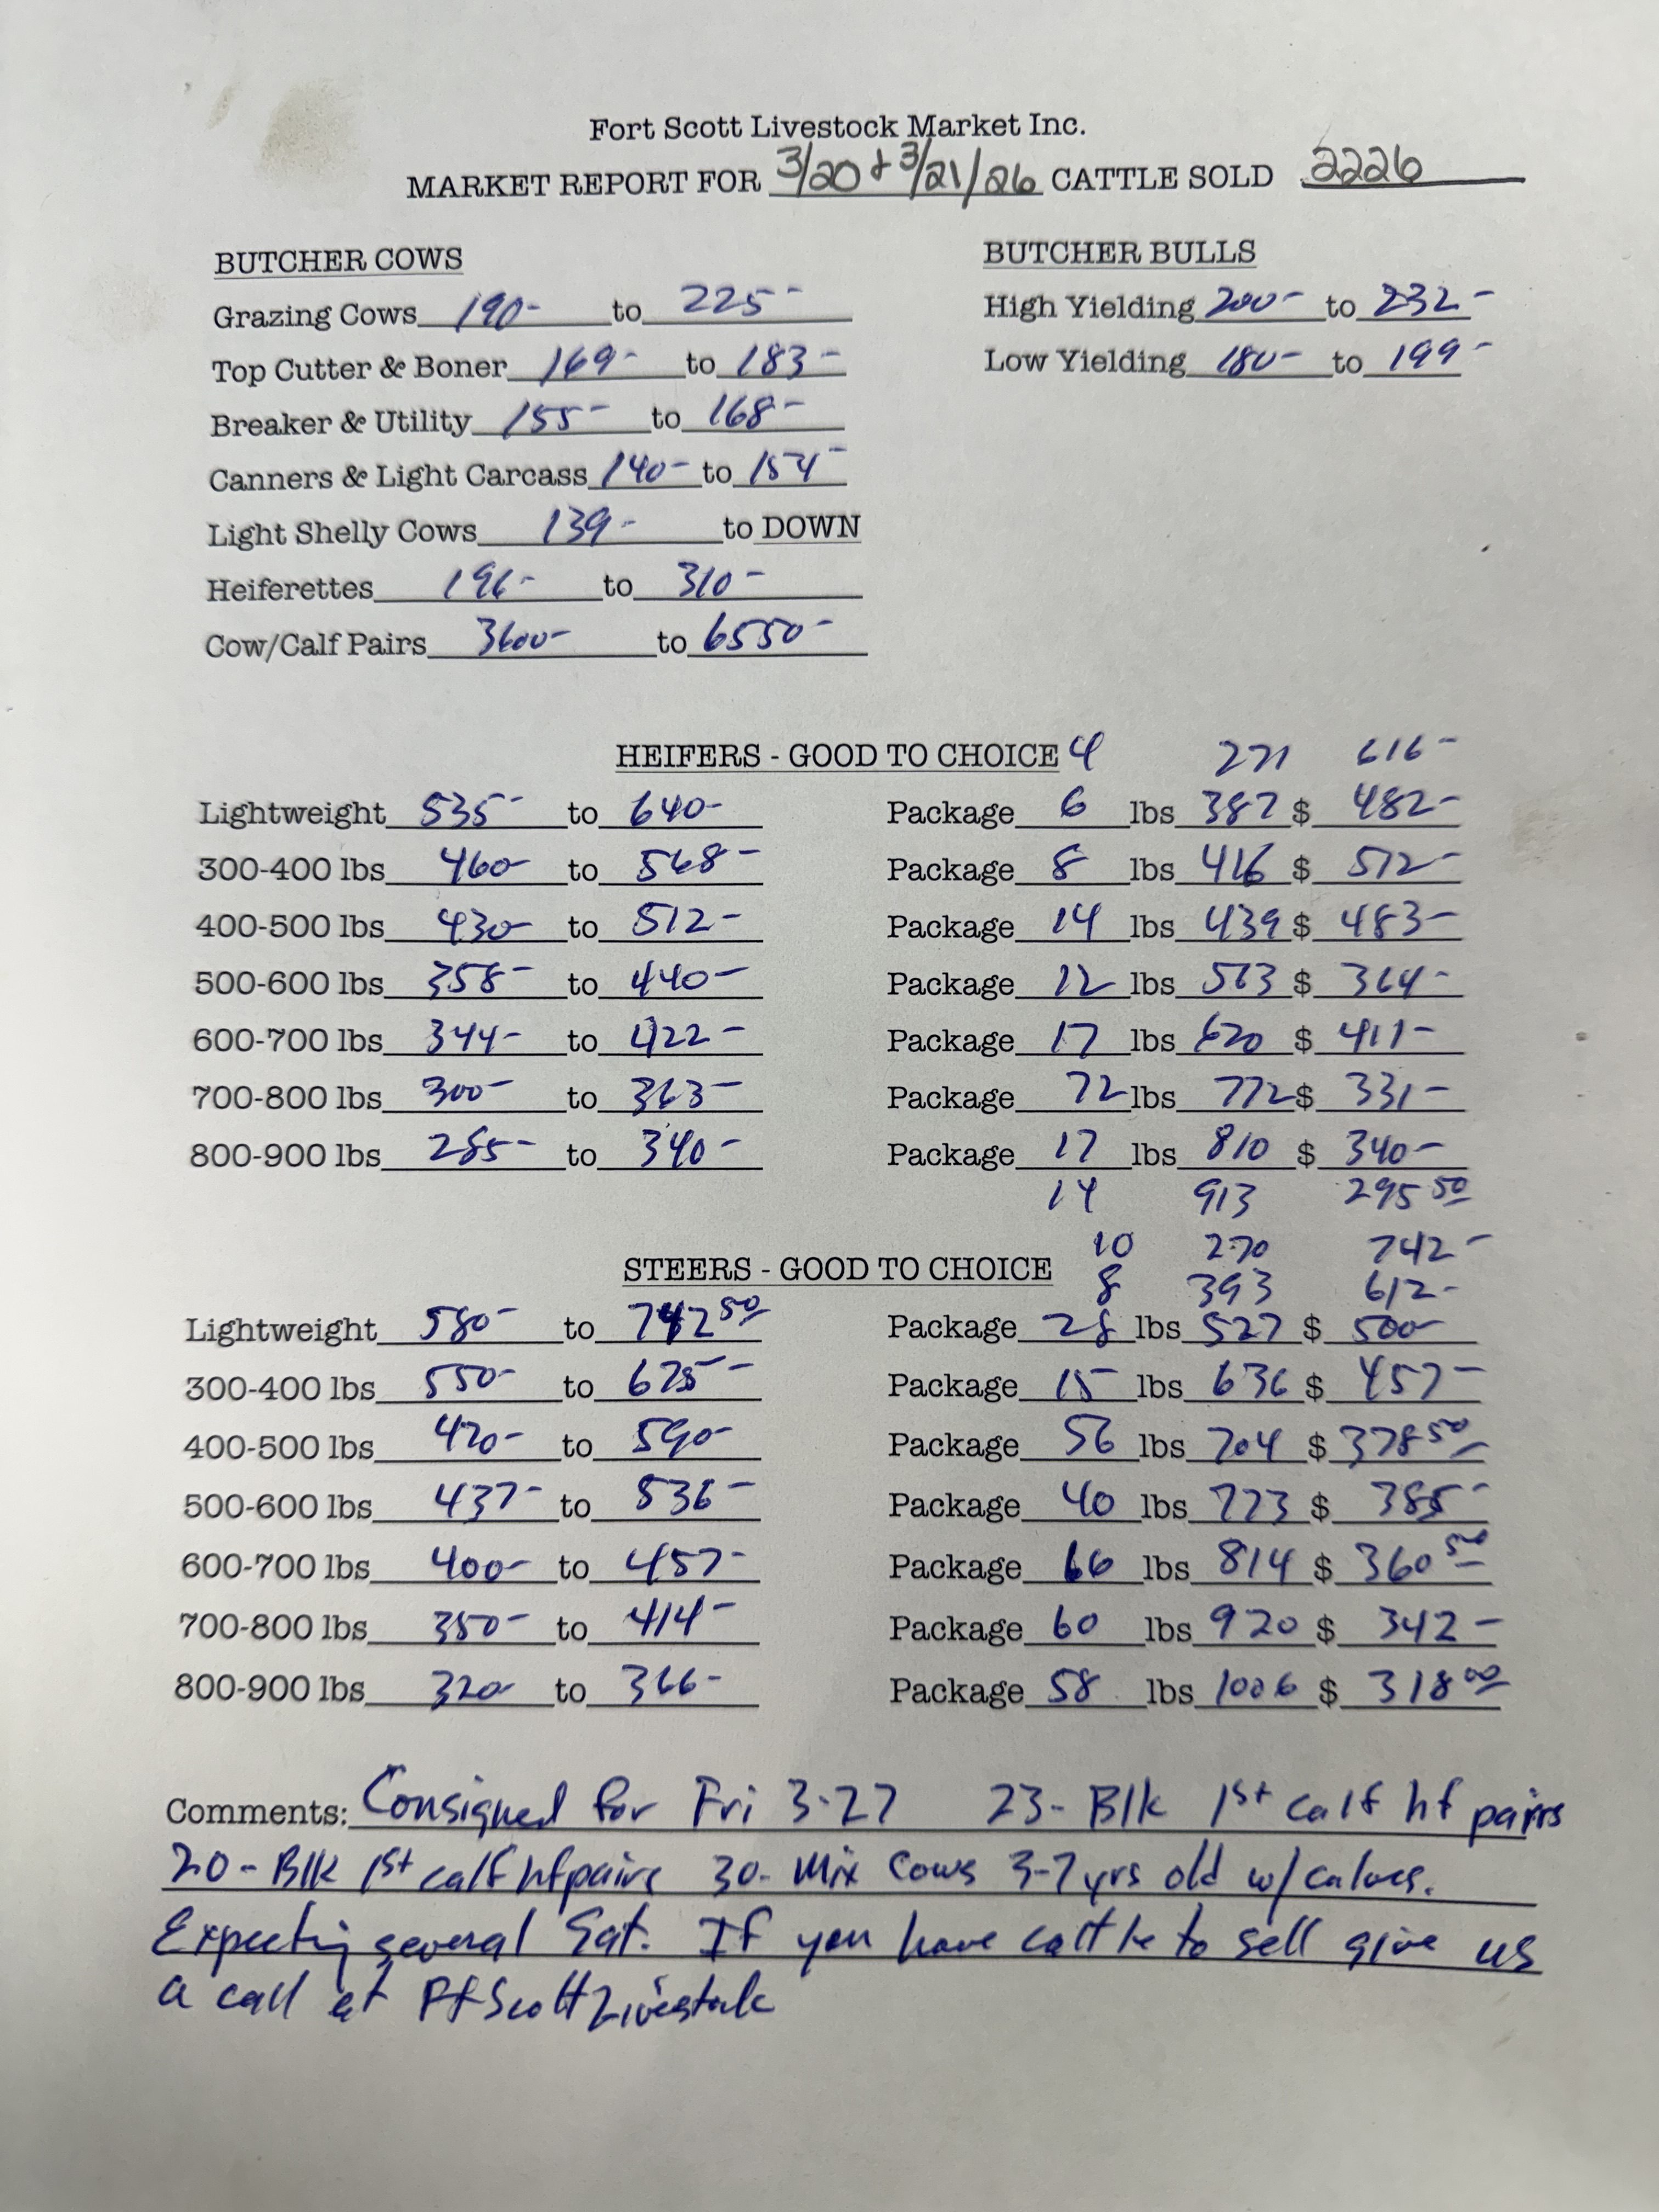 Fort Scott Livestock Market Inc.
MARKET REPORT FOR 3/20 + 3/21/26 CATTLE SOLD 2226
BUTCHER COWS
BUTCHER BULLS
Grazing Cows 190- to 225-
High Yielding 200- to 232-
Top Cutter & Boner 169- to 183-
Low Yielding 180- to 199-
Breaker & Utility 155- to 168-
Canners & Light Carcass 140- to 154-
Light Shelly Cows 139- to DOWN
Heiferettes 196- to 310-
Cow/Calf Pairs 3600- to 6550-
HEIFERS - GOOD TO CHOICE 4 271 616-
Lightweight 535- to 640- Package 6 lbs 387 $ 482-
300-400 lbs 460- to 568- Package 8 lbs 416 $ 512-
400-500 lbs 430- to 512- Package 14 lbs 439 $ 483-
500-600 lbs 358- to 440- Package 12 lbs 563 $ 364-
600-700 lbs 344- to 422- Package 17 lbs 620 $ 411-
700-800 lbs 300- to 363- Package 72 lbs 772 $ 331-
800-900 lbs 285- to 340- Package 17 lbs 810 $ 340-
14 913 295 50
10 270 742-
STEERS - GOOD TO CHOICE 8 393 612-
Lightweight 580- to 742 50 Package 28 lbs 527 $ 500-
300-400 lbs 550- to 625- Package 15 lbs 636 $ 457-
400-500 lbs 470- to 590- Package 56 lbs 704 $ 378 50
500-600 lbs 437- to 536- Package 40 lbs 773 $ 385-
600-700 lbs 400- to 457- Package 66 lbs 814 $ 360 50
700-800 lbs 350- to 414- Package 60 lbs 920 $ 342-
800-900 lbs 320- to 366- Package 58 lbs 1006 $ 318 00
Comments: Consigned for Fri 3-27 23- Blk 1st calf hf pairs
20- Blk 1st calf hf pairs 30- Mix Cows 3-7 yrs old w/ calves.
Expecting several Sat. If you have cattle to sell give us
a call at Ft Scott Livestock